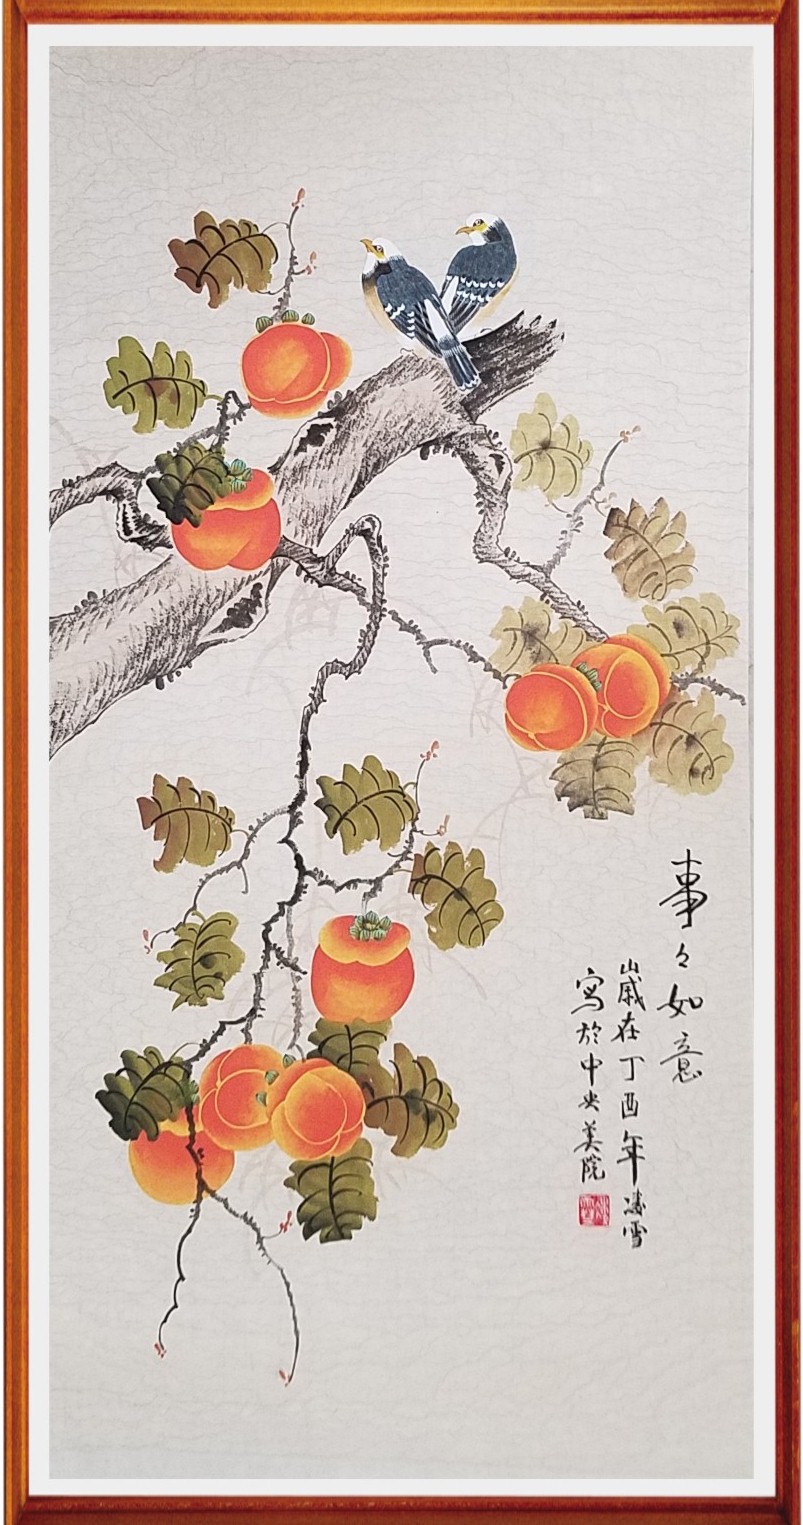 事々如意
歲在丁酉年凌雪
寫於中央美院